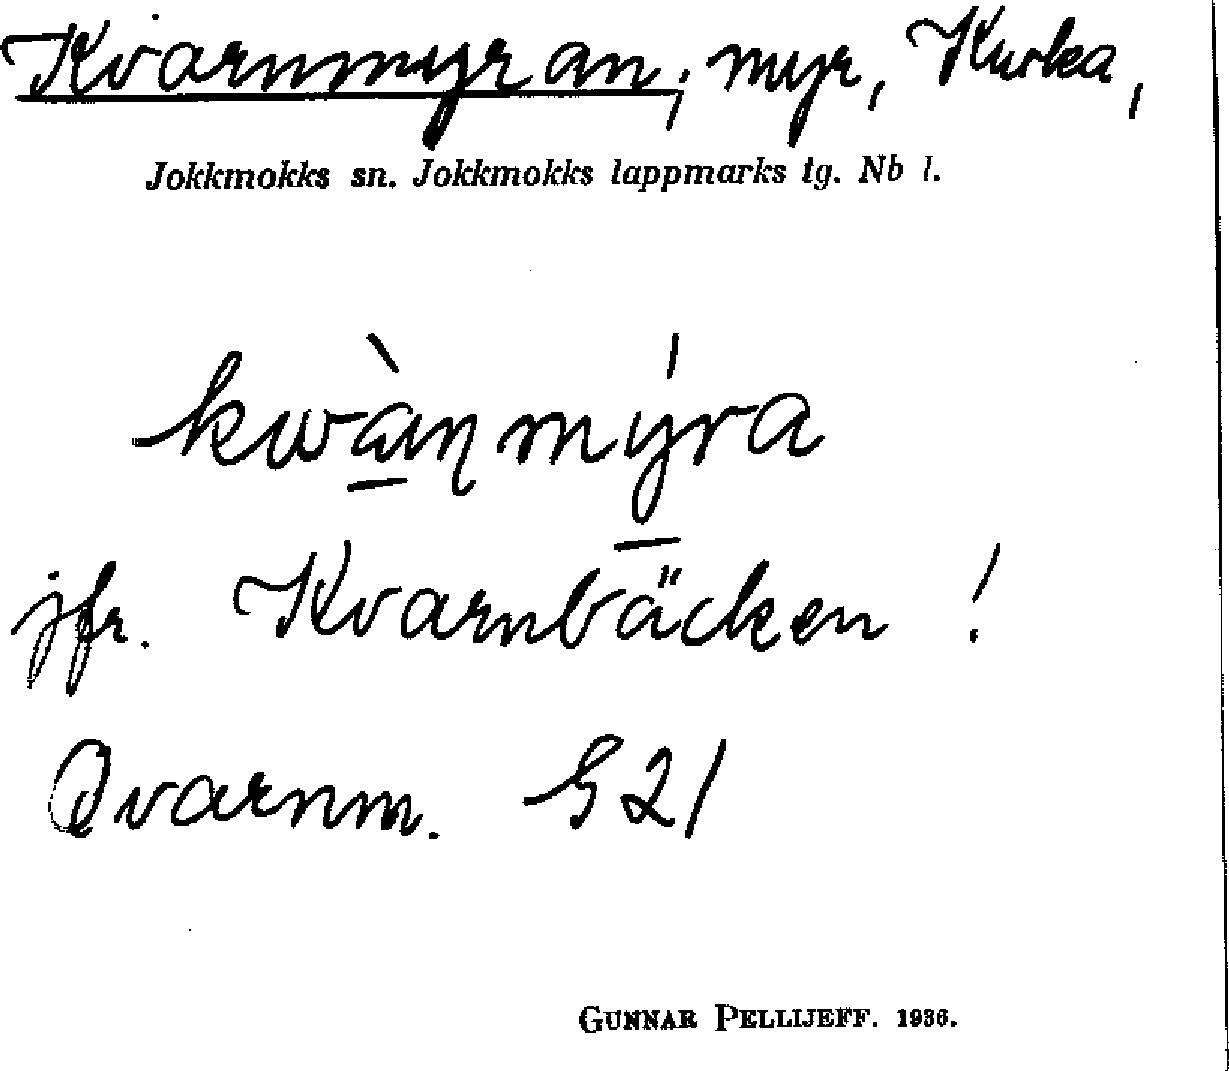 Kvarnmyran, myr, Kurka,
Jokkmokks sn. Jokkmokks lappmarks tg. Nb l.
kwàṇmýra
jfr. Kvarnbäcken!
Qvarnm. S21
GUNNAR PELLIJEFF. 1936.